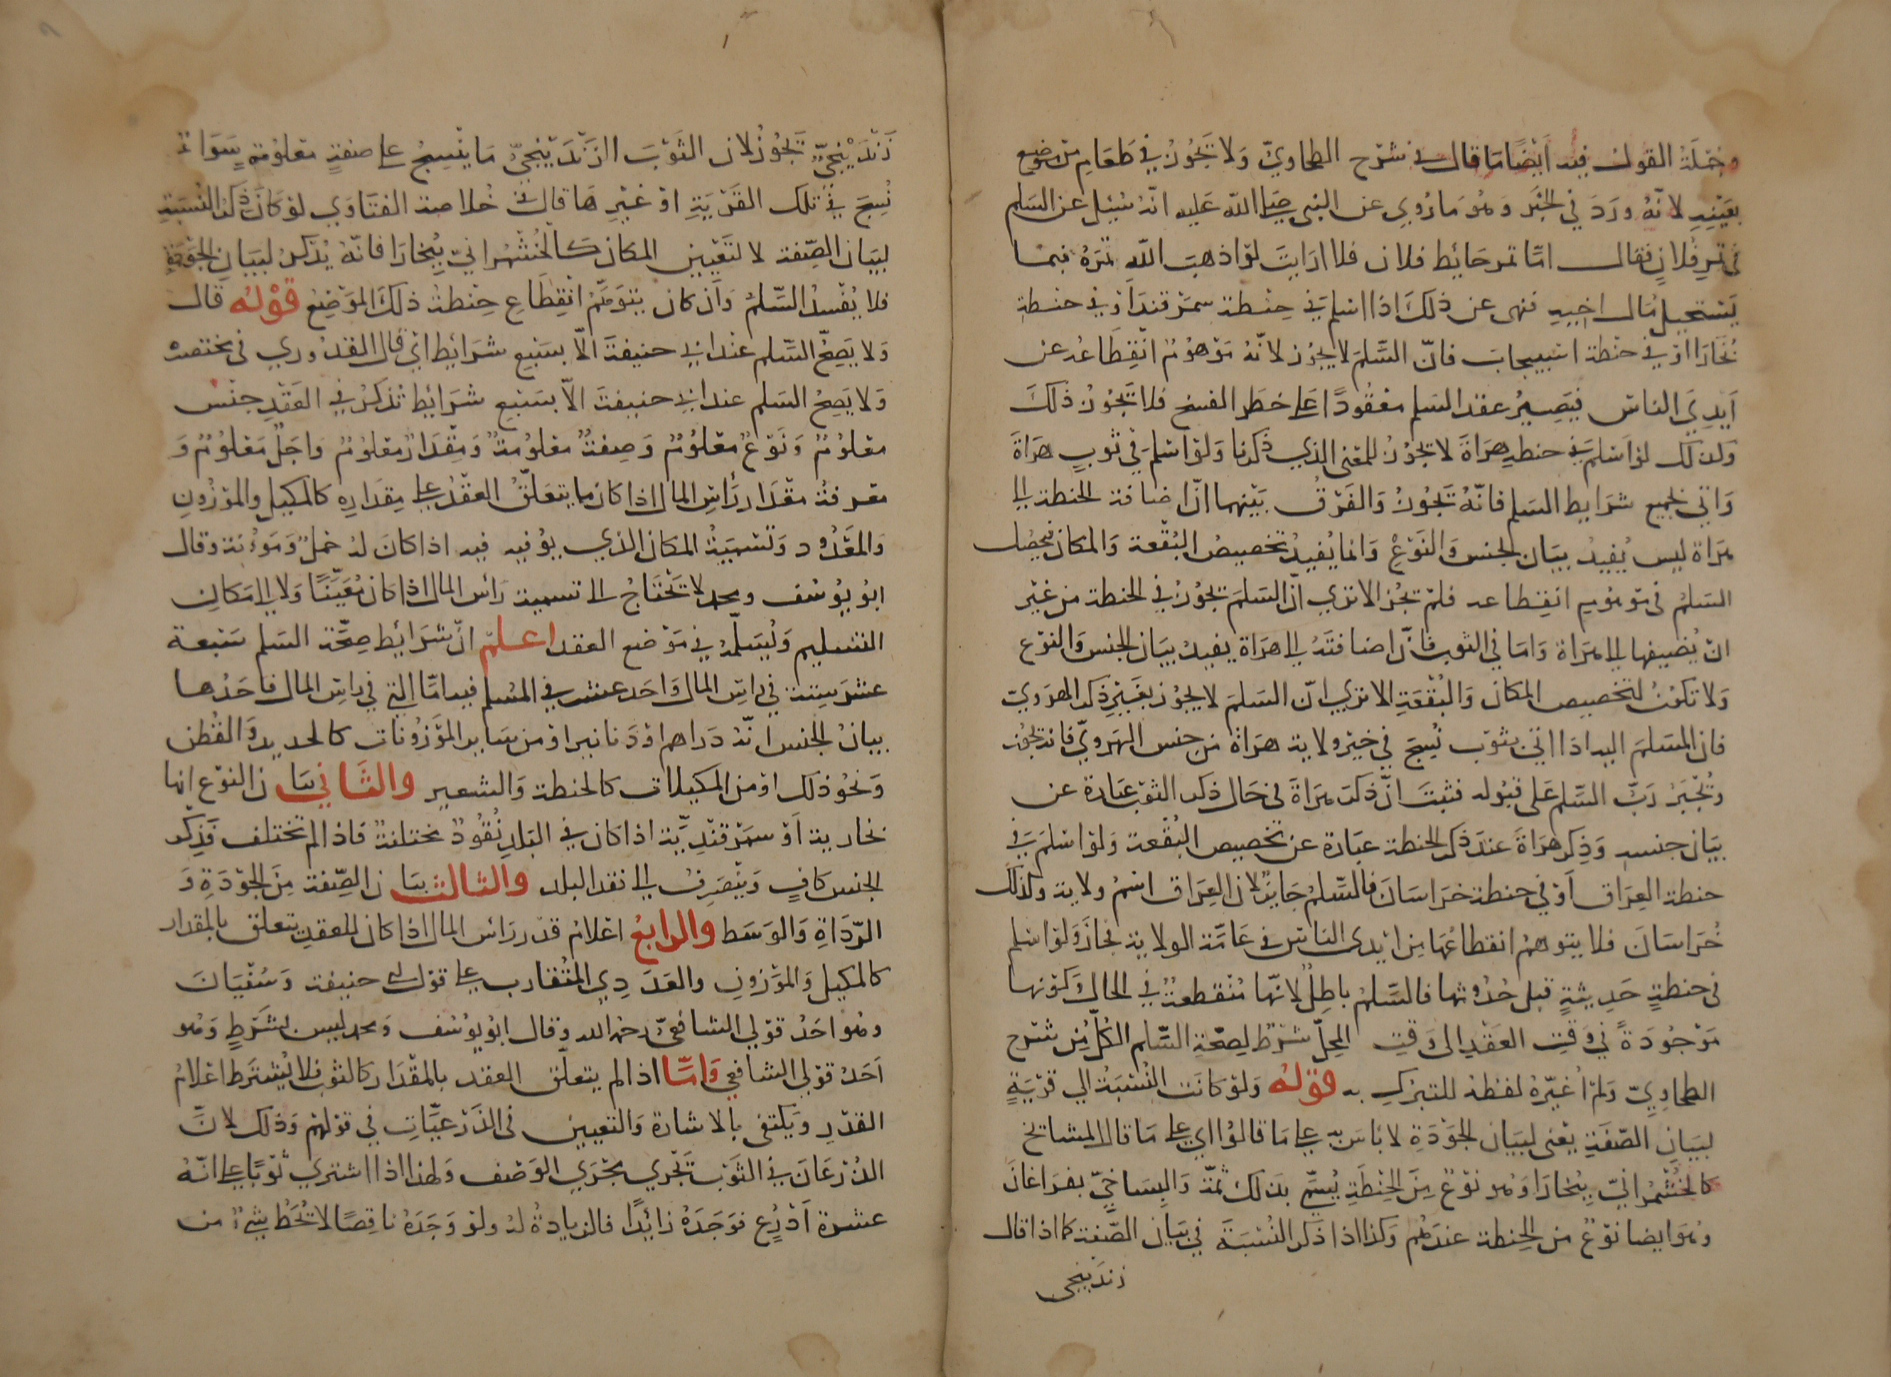 وجملة القول فيه ايضا ما قال في شرح الطحاوي ولا يجوز في طعام من موضع
بعينه لانه ورد في الخبر وهو ما روي عن النبي صلى الله عليه انه سئل عن السلم
في تمر فلان فقال اما تمر حائط فلان فلا ارايت لو اذهب الله تمره فبما
يستحيل مال اخيه فنهى عن ذلك اذا اسلم في حنطة سمرقند او في حنطة
بخارا او في حنطة اسبيجاب فان السلم لا يجوز لانه موهوم انقطاعه عن
ايدي الناس فيصير عقد السلم معقودا على خطر الفسخ فلا يجوز ذلك
وكذلك لو اسلم في حنطة هراة لا يجوز للمعنى الذي ذكرنا ولو اسلم في ثوب هراة
واتى بجميع شرايط السلم فانه يجوز والفرق بينهما ان اضافة الحنطة الى
هراة ليس يفيد بيان الجنس والنوع وانما يفيد تخصيص البقعة والمكان فيحصل
السلم في موهوم انقطاعه فلم يجز الا تري ان السلم يجوز في الحنطة من غير
ان يضيفها الى هراة واما في الثوب فان اضافته الى هراة يفيد بيان الجنس والنوع
ولا تكون لتخصيص المكان والبقعة الا تري ان السلم لا يجوز بغير ذكر الهروي
فان المسلم اليه اذا اتى بثوب نسج في غير ولاية هراة من جنس الهروي فانه يجوز
ويجبر رب السلم على قبوله فثبت ان ذكر هراة في حال ذكر الثوب عبارة عن
بيان جنسه وذكر هراة عند ذكر الحنطة عبارة عن تخصيص البقعة ولو اسلم في
حنطة العراق او في حنطة خراسان فالسلم جايز لان العراق اسم ولاية وكذلك
خراسان فلا يتوهم انقطاعها من ايدي الناس في عامة الولاية فجاز ولو اسلم
في حنطة حديثة قبل حدوثها فالسلم باطل لانها منقطعة في الحال وكونها
موجودة في وقت العقد الى وقت المحل شرط لصحة السلم الكل من شرح
الطحاوي ولم اغيره لفظه للتبرك به قوله ولو كانت النسبة الي قرية
لبيان الصفة يعني لبيان الجودة لا باس به على ما قالوا اي على ما قال المشايخ
كالخشمراني ببخارا وهو نوع من الحنطة يسمى بذلك ثمة والبساخي بفرغانة
وهو ايضا نوع من الحنطة عندهم وكذا اذا ذكر النسبة في بيان الصفة كما اذا قال
زندنيجي
زندنيجي يجوز لان الثوب الزندنيجي ما ينسج على صفة معلومة سواء
نسج في تلك القرية او غيرها قال في خلاصة الفتاوي لو كان ذكر النسبة
لبيان الصفة لا لتعيين المكان كالخشمراني ببخارا فانه يذكر لبيان الجودة
فلا يفسد السلم وان كان يتوهم انقطاع حنطة ذلك الموضع قوله قال
ولا يصح السلم عند ابي حنيفة الا بسبع شرايط اي قال القدوري في مختصره
ولا يصح السلم عند ابي حنيفة الا بسبع شرائط تذكر في العقد جنس
معلوم ونوع معلوم وصفة معلومة ومقدار معلوم واجل معلوم و
معرفة مقدار رأس المال اذا كان مما يتعلق العقد على مقداره كالمكيل والموزون
والمعدود وتسمية المكان الذي يوفيه فيه اذا كان له حمل ومؤنة وقال
ابو يوسف ومحمد لا تحتاج الى تسمية رأس المال اذا كان معينا ولا الى مكان
التسليم ويسلمه في موضع العقد اعلم ان شرائط صحة السلم سبعة
عشر ستة في راس المال واحد عشر في المسلم فيه اما التي في راس المال فاحدها
بيان الجنس انه دراهم او دنانير او من ساير الموزونات كالحديد والقطن
ونحو ذلك او من المكيلات كالحنطة والشعير والثاني بيان النوع انها
بخارية او سمرقندية اذا كان في البلد نقود مختلفة فاذا لم تختلف فذكر
الجنس كاف وينصرف الى نقد البلد والثالث بيان الصفة من الجودة و
الرداة والوسط والرابع اعلام قدر رأس المال اذا كان للعقد يتعلق بالمقدار
كالمكيل والموزون والعددي المتقارب على قول ابي حنيفة وسفيان
وهو احد قولي الشافعي رحمه الله وقال ابو يوسف ومحمد ليس بشرط وهو
احد قولي الشافعي واما اذا لم يتعلق العقد بالمقدار كالثوب فلا يشترط اعلام
القدر ويكتفى بالاشارة والتعيين في الذرعيات في قولهم وذلك لان
الذرعان في الثوب تجري مجري الوصف ولهذا اذا اشتري ثوبا على انه
عشرة اذرع فوجده زائدا فالزيادة له ولو وجده ناقصا لا تحط شيء من